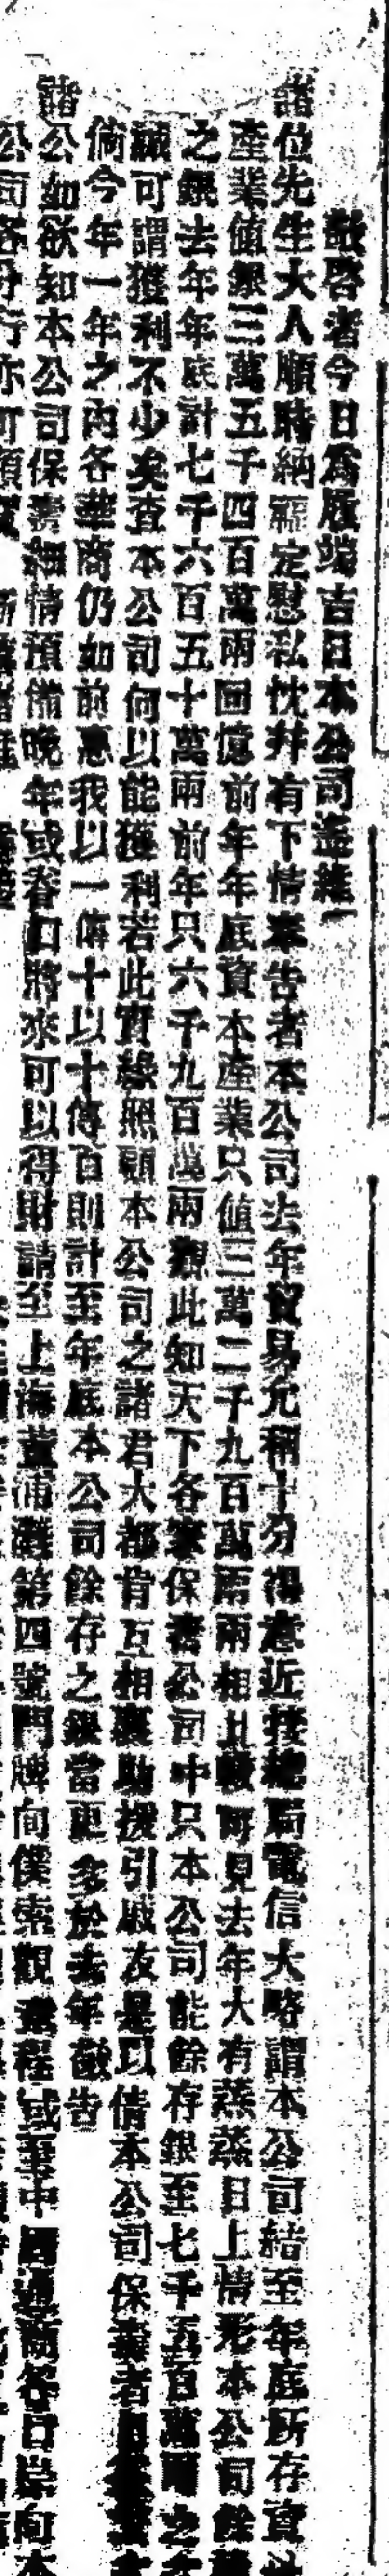 敬啓者今日爲履端吉日本公司遙
諸位先生大人順時納福定慰私忱幷有下情奉告者本公司去年貿易尤稱十分得意近接總局電信大畧謂本公司結至年底所存資
產業値銀三萬五千四百萬兩回憶前年年底資本產業只値三萬二千九百萬兩兩相比較可見去年大有蒸蒸日上情形本公司餘
之銀去年年底計七千六百五十萬兩前年只六千九百萬兩觀此知天下各家保壽公司中只本公司能餘存銀至七千五百萬兩之
誠可謂獲利不少矣查本公司何以能獲利若此實緣照顧本公司之諸君大都肯互相襄助援引戚友是以倩本公司保壽者
倘今年一年之內各華商仍如前惠我以一傳十以十傳百則計至年底本公司餘存之銀當更多於去年敬告
諸公如欲知本公司保壽細情預備晚年或眷口將來可以得財請至上海黃浦灘第四號門牌向僕索觀章程或至中國通商各口岸向本
公司各分行亦可